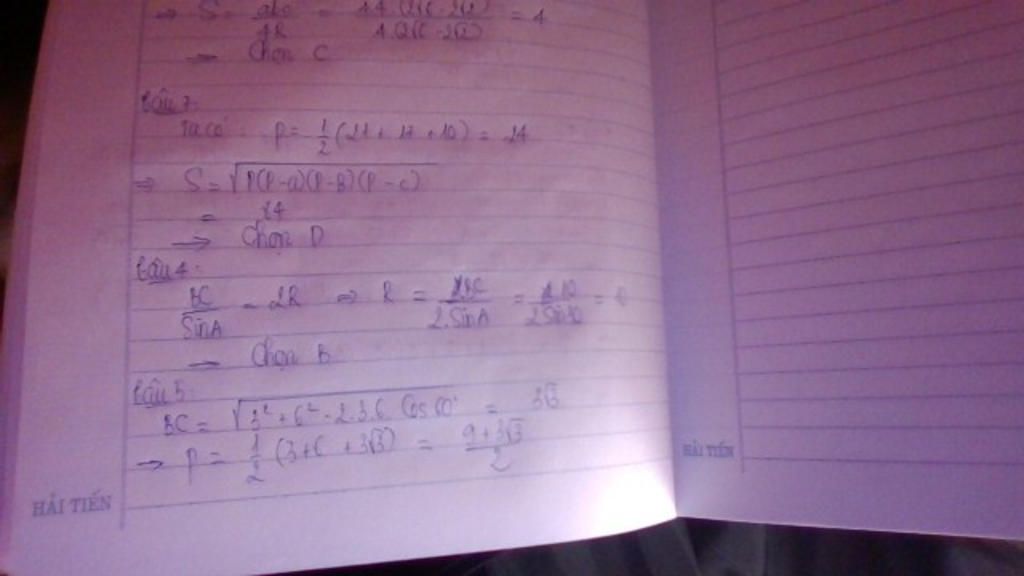 ⇒ S = abc/4R = = 4
→ Chọn C
Câu 3:
Ta có: p = 1/2 (21 + 17 + 10) = 24
⇒ S = √P(P-a)(P-B)(P-c)
= 84
→ Chọn D
Câu 4:
BC/SinA = 2R ⇒ R = BC/2.SinA =
→ Chọn B
Câu 5:
BC = √3² + 6² - 2.3.6 Cos 60° = 3√3
→ p = 1/2 (3+6 + 3√3) = 9+3√3/2
HẢI TIẾN
HẢI TIẾN